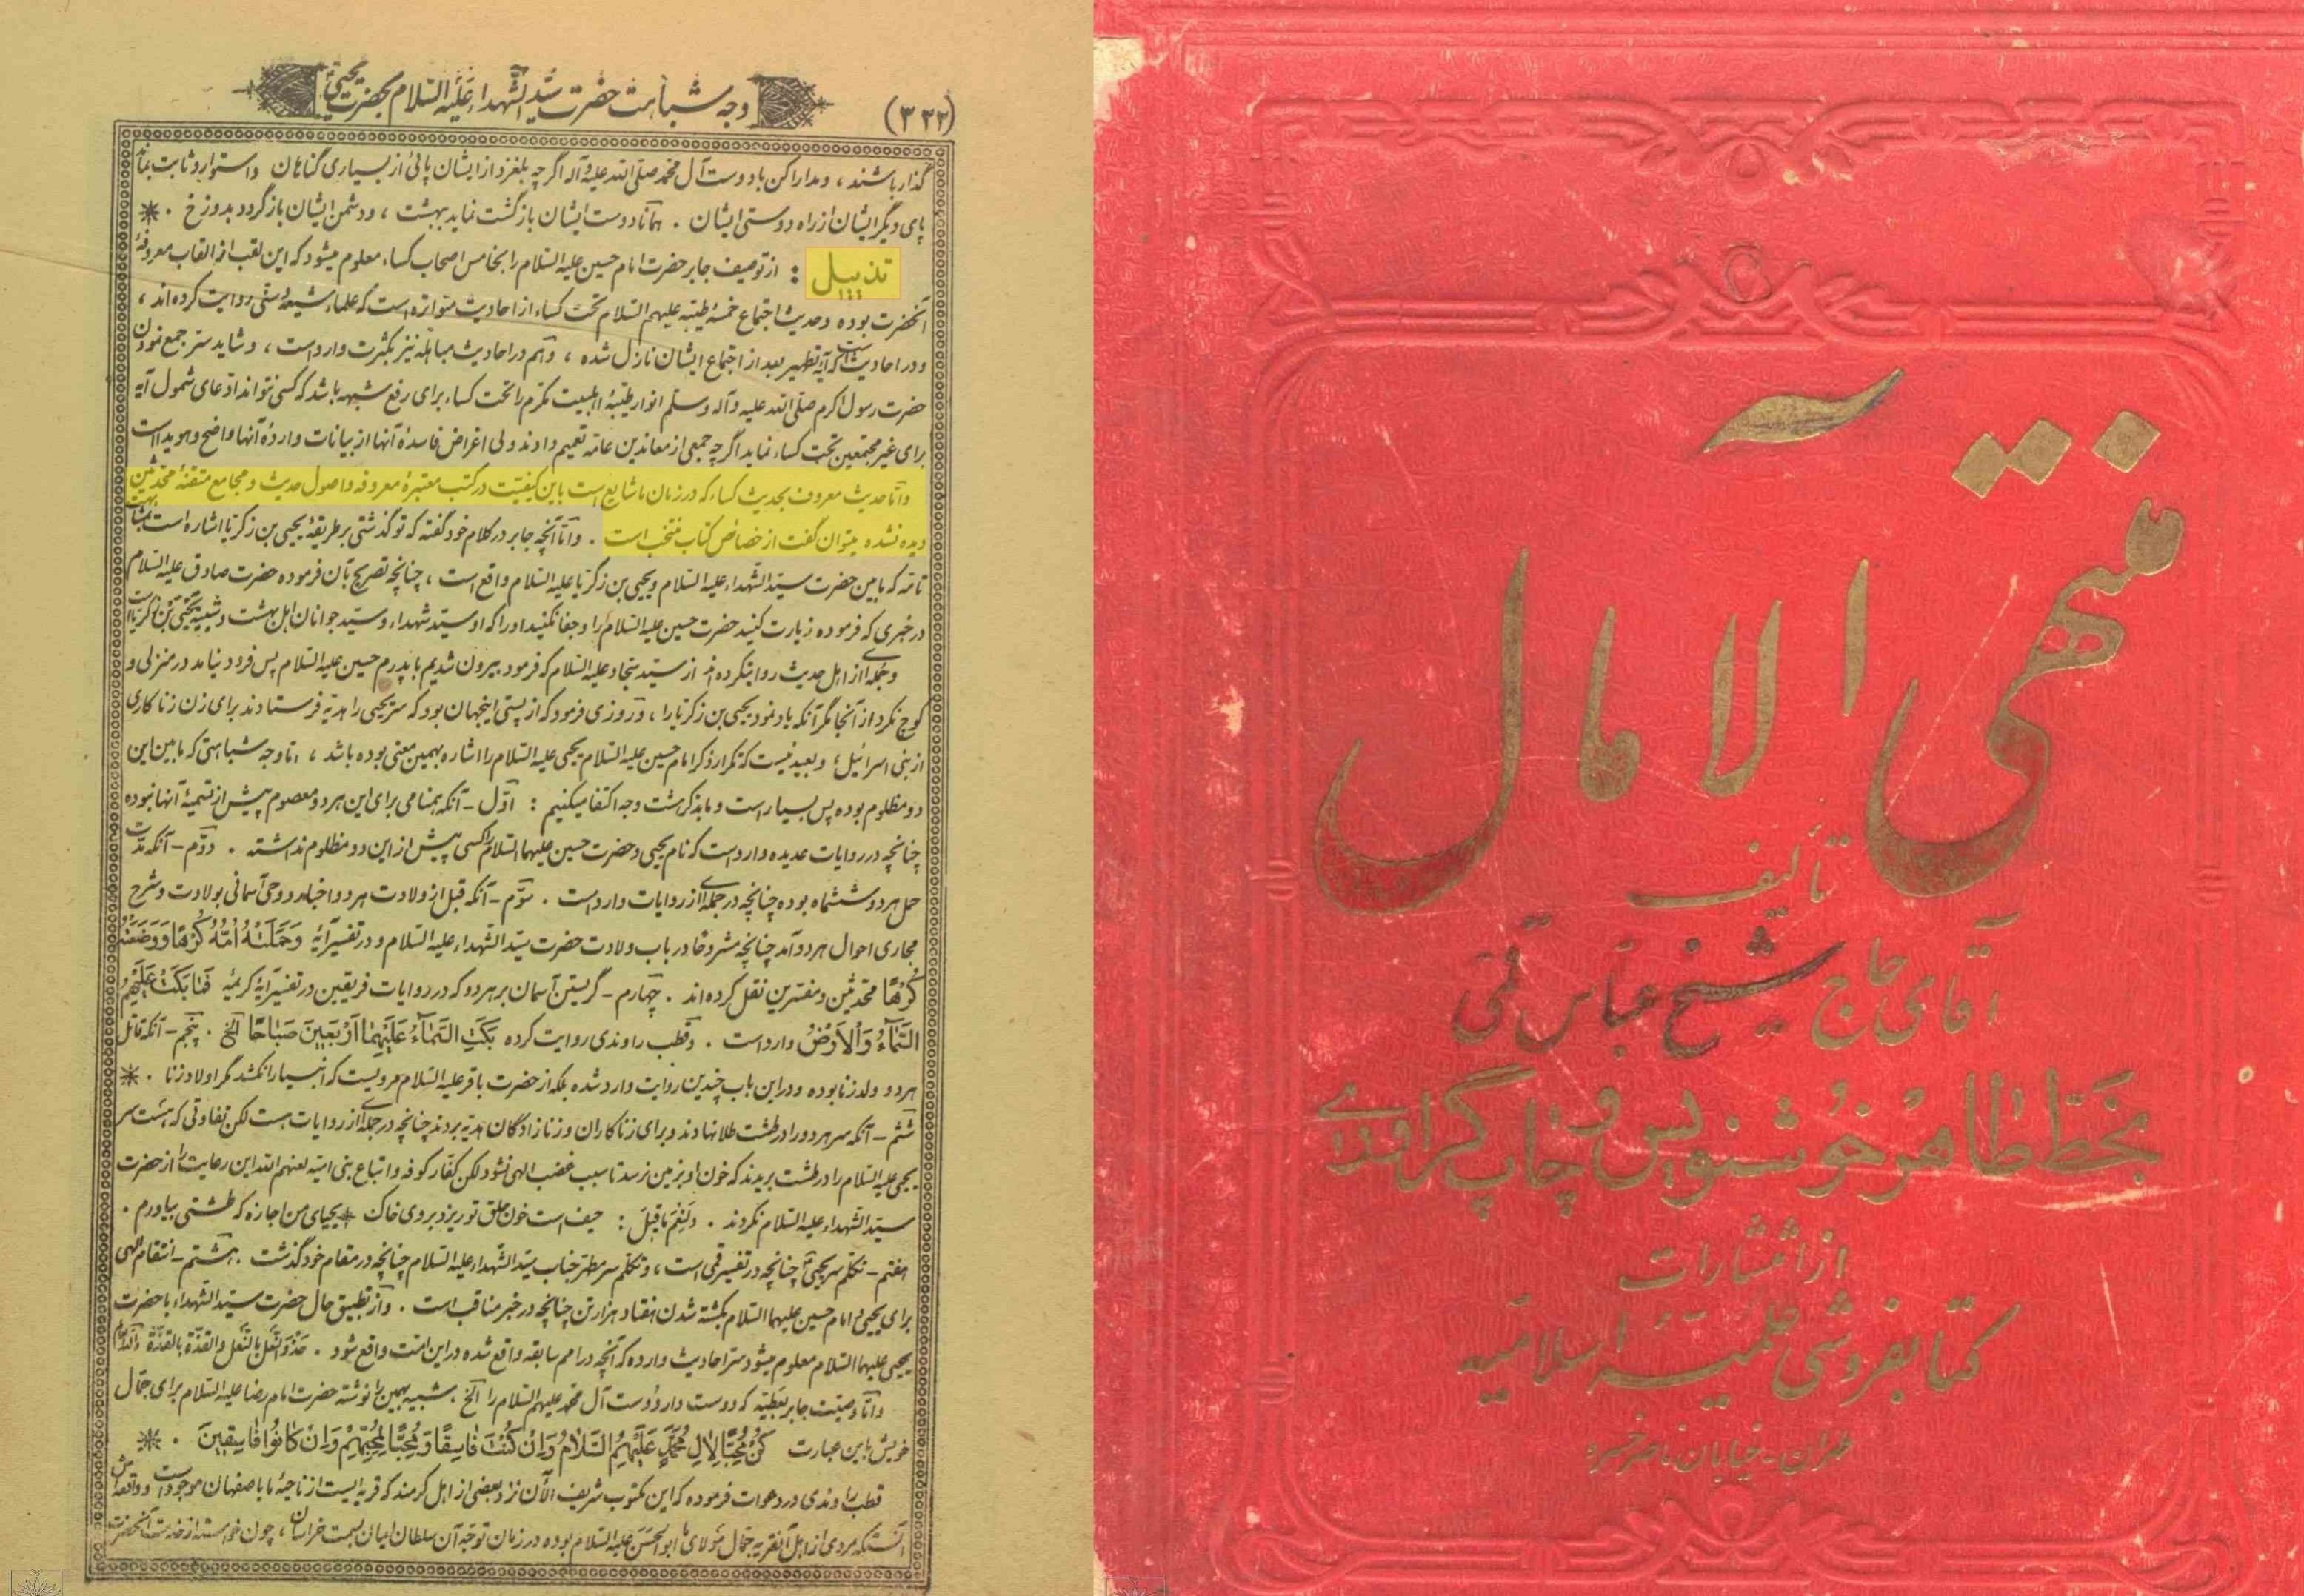 (۳۳۲)
وجه شباهت حضرت سیّد الشّهداء عَلَیْهِ السَّلام بحضرت یحییٰ
گذار باشند، و مدارا کن با دوست آل محمّد صلّی الله علیه و آله اگر چه بلغزد از ایشان پائی از بسیاری گناهان و استوار و ثابت بماند
پای دیگر ایشان از راه دوستی ایشان . همانا دوست ایشان بازگشت نماید ببهشت ، و دشمن ایشان بازگردد بدوزخ . *
تذییل : از توصیف جابر حضرت امام حسین علیه السّلام را بخامس اصحاب کساء معلوم میشود که این لقب از القاب معروفهٔ
آنحضرت بوده و حدیث اجتماع خمسهٔ طیّبه علیهم السّلام تحت کساء از احادیث متواتره است که علماء شیعه و سنّی روایت کرده‌اند ،
و در احادیث است که آیهٔ تطهیر بعد از اجتماع ایشان نازل شده ، و هم در احادیث مباهله نیز بکثرت وارد است ، و شاید سرّ جمع نمودن
حضرت رسول اکرم صلّی الله علیه و آله و سلّم انوار طیّبهٔ اهلبیت مکرّم را تحت کساء برای رفع شبهه باشد که کسی نتواند ادّعای شمول آیه
برای غیر مجتمعین تحت کساء نماید اگر چه جمعی از معاندین عامّه تعمیم دادند ولی اغراض فاسدهٔ آنها از بیانات واردهٔ آنها واضح و هویدا است
و امّا حدیث معروف بحدیث کساء که در زمان ما شایع است باین کیفیّت در کتب معتبرهٔ معروفه و اصول حدیث و مجامع متقنهٔ محدّثین
دیده نشده میتوان گفت از خصائص کتاب منتخب است . و امّا آنچه جابر در کلام خود گفته که تو گذشتی بر طریقهٔ یحیی بن زکریّا اشاره است بمشابهت
تامّه که مابین حضرت سیّد الشّهداء علیه السّلام و یحیی بن زکریّا علیه السّلام واقع است ، چنانچه تصریح بآن فرموده حضرت صادق علیه السّلام
در خبری که فرموده زیارت کنید حضرت حسین علیه السّلام را و جفا نکنید او را که او سیّد شهداء و سیّد جوانان اهل بهشت و شبیه یحیی بن زکریّا است
و جمله‌ای از اهل حدیث روایت کرده‌اند از سیّد سجّاد علیه السّلام که فرمود بیرون شدیم با پدرم حسین علیه السّلام پس فرود نیامد در منزلی و
کوچ نکرد از آنجا مگر آنکه یاد نمود یحیی بن زکریّا را ، و روزی فرمود که از پستی اینجهان بود که سر یحیی را هدیه فرستادند برای زن زناکاری
از بنی اسرائیل ؛ و بعید نیست که تکرار ذکر امام حسین علیه السّلام یحیی علیه السّلام را اشاره بهمین معنی بوده باشد ، امّا وجه شباهتی که مابین این
دو مظلوم بوده پس بسیار است و ما بذکر هشت وجه اکتفا میکنیم : اوّل - آنکه همنامی برای این هر دو معصوم پیش از تسمیهٔ آنها نبوده
چنانچه در روایات عدیده وارد است که نام یحیی و حضرت حسین علیهما السّلام را کسی پیش از این دو مظلوم نداشته . دوّم - آنکه مدّت
حمل هر دو ششماه بوده چنانچه در جمله‌ای از روایات وارد است . سوّم - آنکه قبل از ولادت هر دو اخبار و وحی آسمانی بولادت و شرح
مجاری احوال هر دو آمد چنانچه مشروحا در باب ولادت حضرت سیّد الشّهداء علیه السّلام و در تفسیر آیه وَحَمَلَتْهُ اُمُّهُ كُرْهًا وَوَضَعَتْهُ
كُرْهًا محدّثین و مفسّرین نقل کرده‌اند . چهارم - گریستن آسمان بر هر دو که در روایات فریقین در تفسیر آیهٔ کریمهٔ فَمَا بَكَتْ عَلَيْهِمُ
السَّمَاءُ وَالْاَرْضُ وارد است . و قطب راوندی روایت کرده بَكَتِ السَّمَاءُ عَلَيْهِمَا اَرْبَعِينَ صَبَاحًا الخ . پنجم - آنکه قاتل
هر دو ولد زنا بوده و در این باب چندین روایت وارد شده بلکه از حضرت باقر علیه السّلام مرویست که انبیا را نکشد مگر اولاد زنا . *
ششم - آنکه سر هر دو را در طشت طلا نهادند و برای زناکاران و زنازادگان هدیه بردند چنانچه در جمله‌ای از روایات هست لکن تفاوتی که هست سر
یحیی علیه السّلام را در طشت بریدند که خون او بزمین نرسد تا سبب غضب الهی نشود لکن کفّار کوفه و اتباع بنی امیّه لعنهم الله این رعایت را از حضرت
سیّد الشّهداء علیه السّلام نکردند . وَ لَنِعْمَ مَا قِیلَ : حیف است خون حلق تو ریزد بروی خاک * یحیای من اجازه که طشتی بیاورم .
هفتم - تکلّم سر یحیی چنانچه در تفسیر قمی است ، و تکلّم سر مطهّر جناب سیّد الشّهداء علیه السّلام چنانچه در مقام خود گذشت . هشتم - انتقام الهی
برای یحیی و امام حسین علیهما السّلام بکشته شدن هفتاد هزار تن چنانچه در خبر مناقب است . و از تطبیق حال حضرت سیّد الشّهداء با حضرت
یحیی علیهما السّلام معلوم میشود سرّ احادیث وارده که آنچه در امم سابقه واقع شده در این امّت واقع شود . حَذْوَ النَّعْلِ بِالنَّعْلِ وَ الْقُذَّةِ بِالْقُذَّةِ
و امّا وصیّت جابر بعطیّه که دوست دار دوست آل محمّد علیهم السّلام را الخ ، شبیه بهمین را نوشته حضرت امام رضا علیه السّلام برای جمّال
خویش باین عبارت كُنْ مُحِبًّا لِآلِ مُحَمَّدٍ عَلَيْهِمُ السَّلَامُ وَاِنْ كُنْتَ فَاسِقًا وَ مُحِبًّا لِمُحِبِّيهِمْ وَاِنْ كَانُوا فَاسِقِينَ . *
قطب راوندی در دعوات فرموده که این مکتوب شریف الآن نزد بعضی از اهل کرمند که قریه‌ایست از ناحیهٔ ما باصفهان موجود است و واقعه‌اش
آنستکه مردی از اهل آنقریه جمّال مولای ما ابو الحسن علیه السّلام بوده در زمان توجّه آن سلطان امیان بسمت خراسان ، چون خواسته از خدمت آنحضرت
منتهی الآمال
تألیف
آقای حاج شیخ عباس قمی
بخطّ طاهر خوشنویس و چاپ گراوری
از انتشارات
کتابفروشی علمیّهٔ اسلامیّه
طهران - خیابان ناصر خسرو